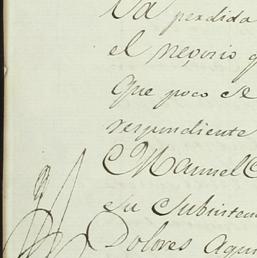 Va perdida
el negosio q
que poco se
respondiente
Manuel C
su subsisten
Dolores Aqui